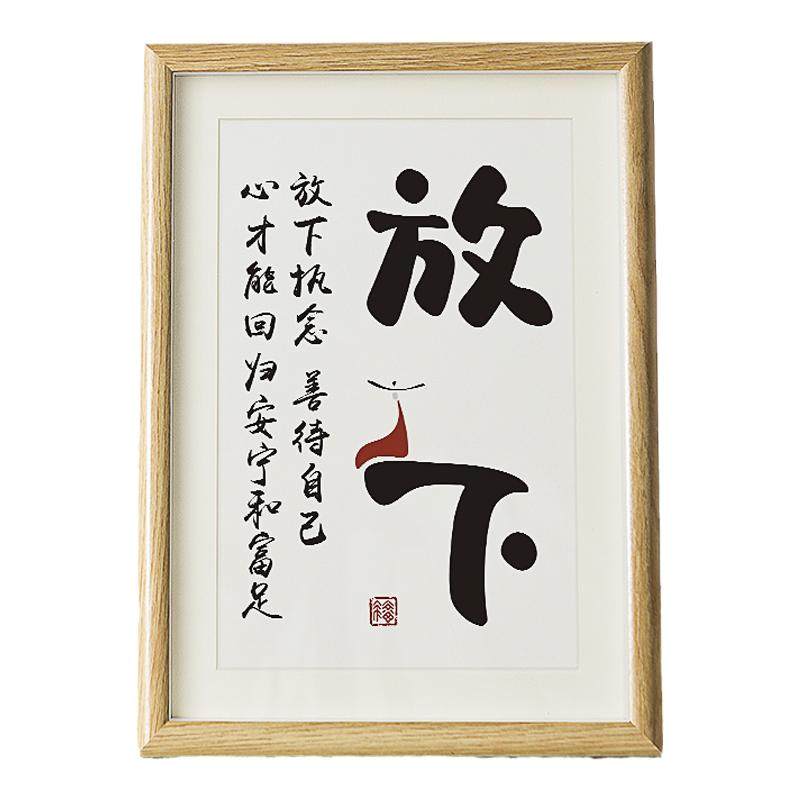 放下
放下执念 善待自己
心才能回归安宁和富足